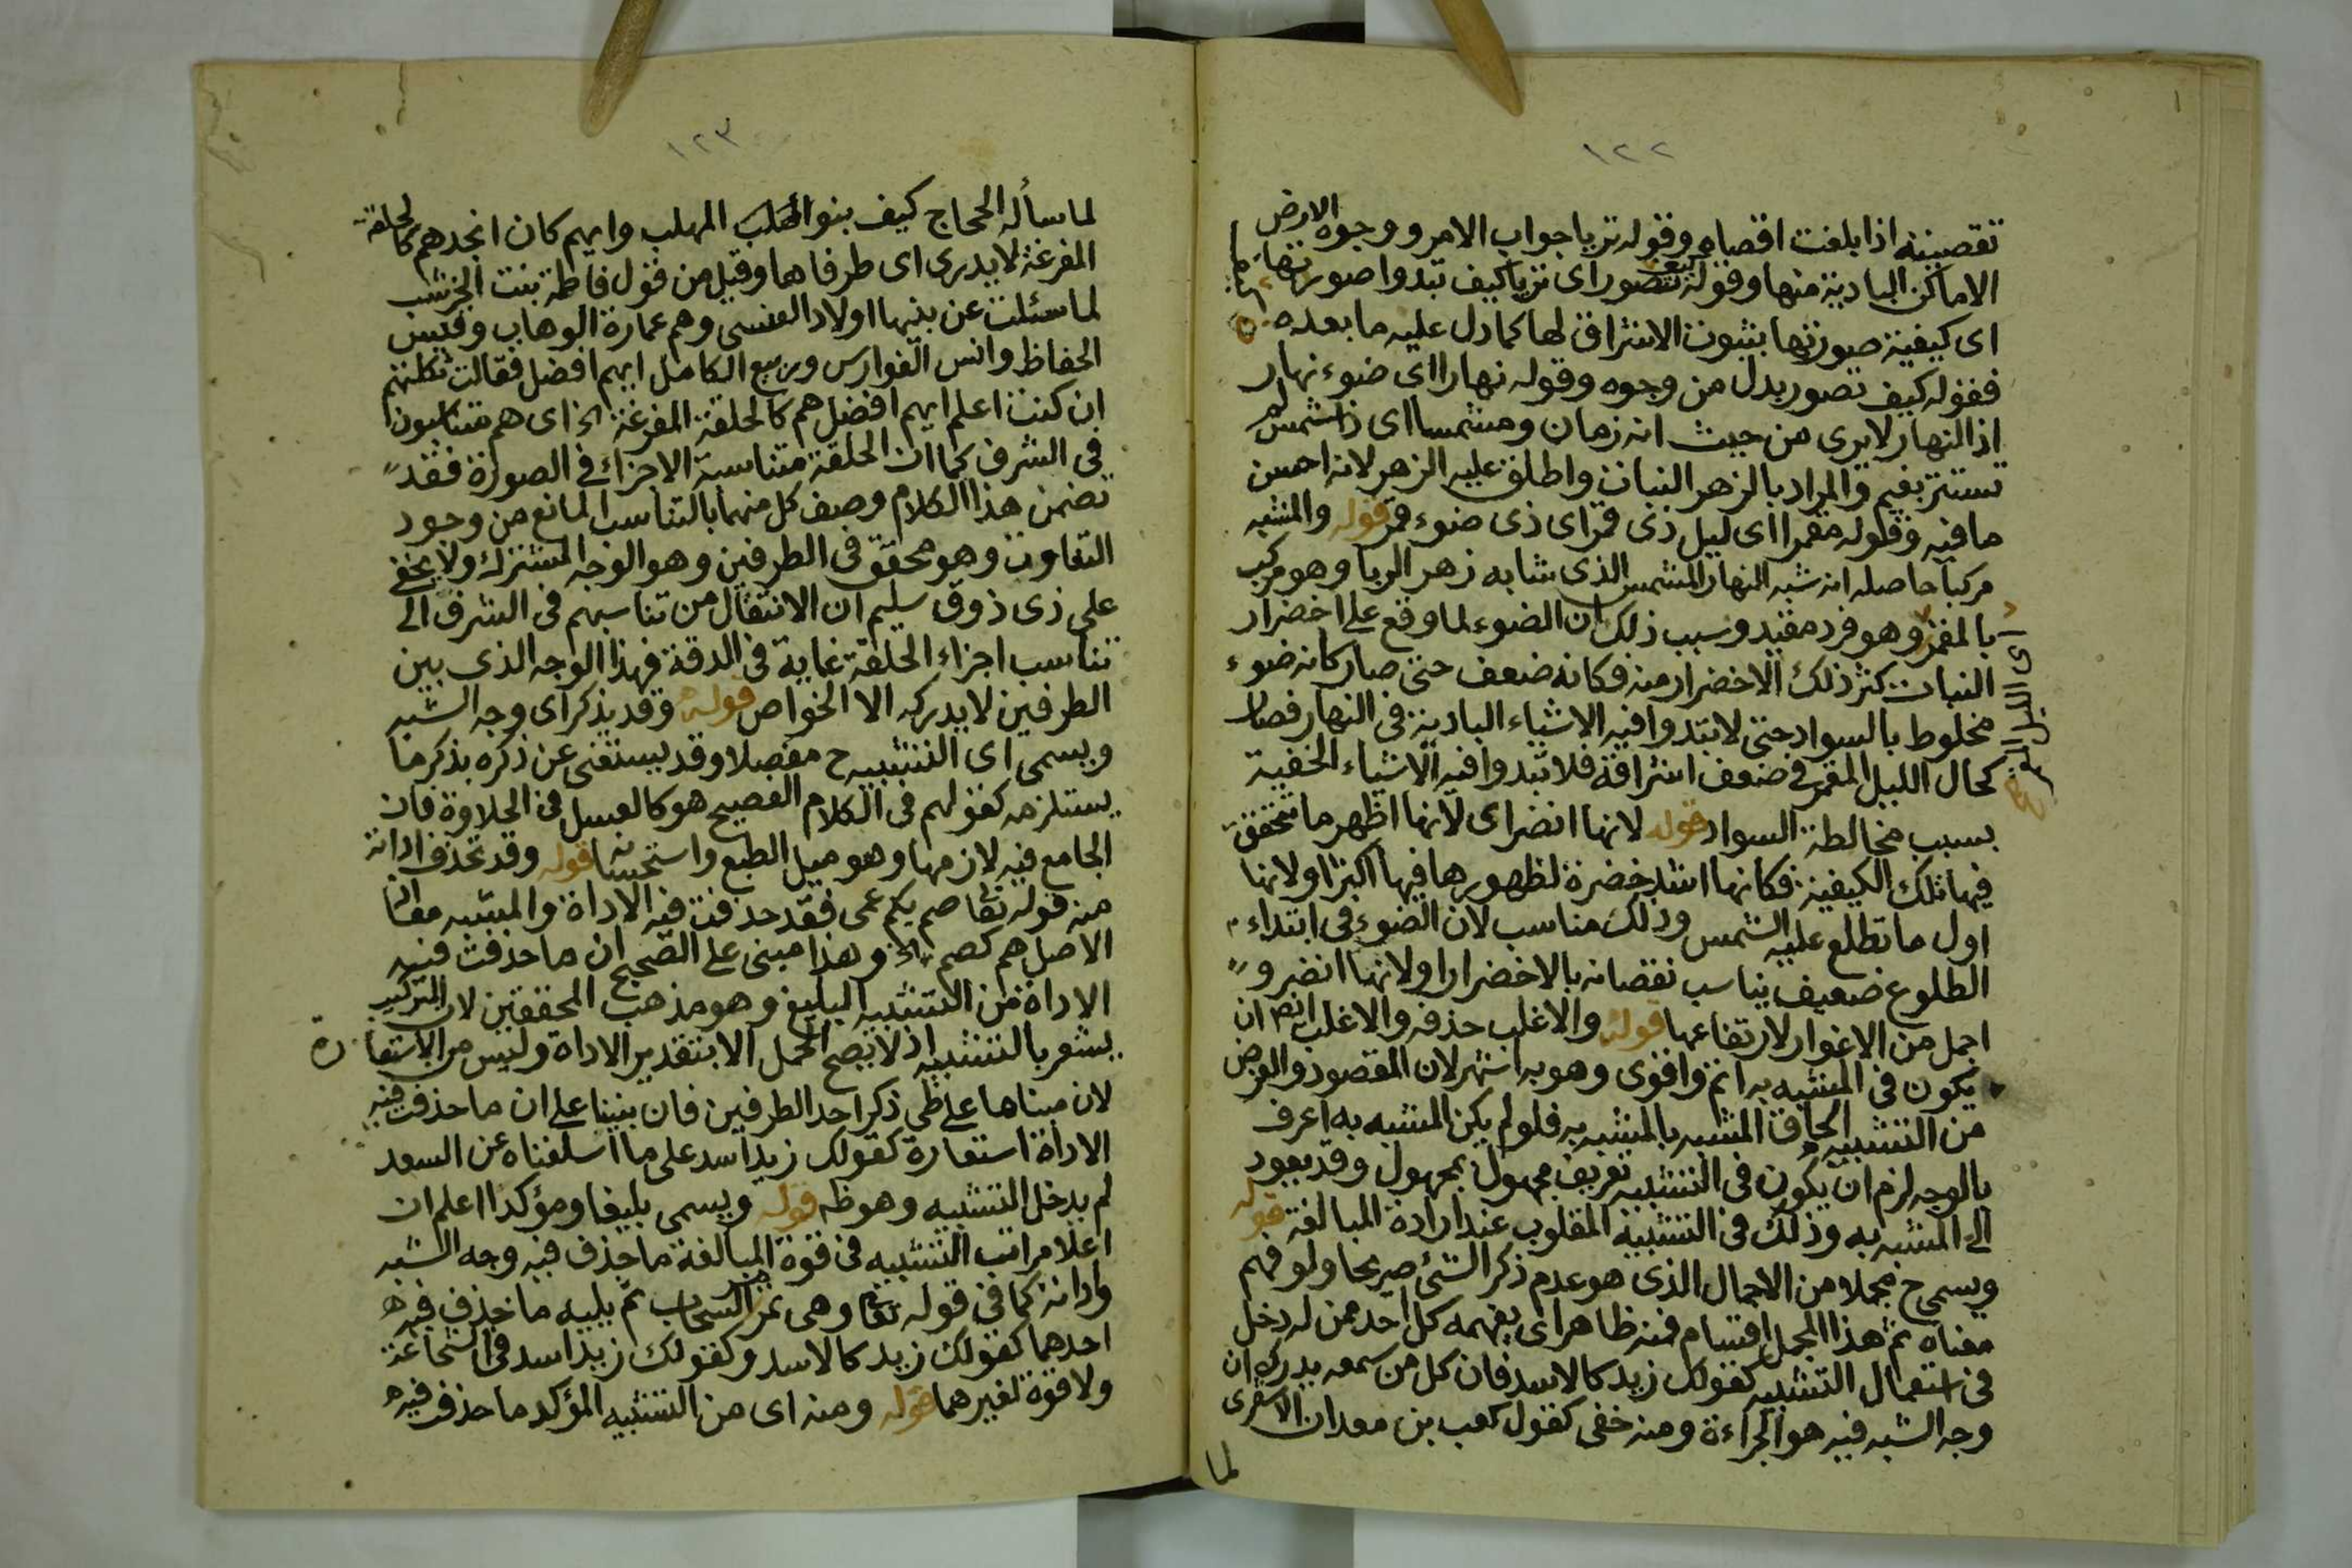 ١٢٢
تقصيته اذا بلغت اقصاه وقوله تريا جواب الامر ووجوه الارض
الاماكن البادية منها وقوله كيف تصور اى تريا كيف تبدوا صورتها
اى كيفية صورتها بثبوت الاشراق لها كما دل عليه ما بعده
فقوله كيف تصور بدل من وجوه وقوله نهارا اى ضوء نهار
اذ النهار لا يرى من حيث انه زمان ومشمسا اى ذا شمس لم
تستتر بغيم والمراد بالزهر النبات واطلق عليه الزهر لانه احسن
ما فيه وقوله مقمرا اى ليل ذى قمر اى ذى ضوء قمر قوله والمشبه
مركبا حاصله انه شبه النهار المشمس الذى شابه زهر الربا وهو مركب
بالمقمر وهو فرد مقيد وسبب ذلك ان الضوء لما وقع على اخضرار
النبات كثر ذلك الاخضرار منه فكانه ضعف حتى صار كانه ضوء
مخلوط بالسواد حتى لا تبدوا فيه الاشياء البادية فى النهار فصار
كحال الليل المقمر فى ضعف اشراقه فلا تبدوا فيه الاشياء الخفية
بسبب مخالطة السواد قوله لانها انضر اى لانها اظهر ما تتحقق
فيها تلك الكيفية فكانها اشد خضرة لظهورها فيها اكثر او لانها
اول ما تطلع عليه الشمس وذلك مناسب لان الضوء فى ابتداء
الطلوع ضعيف يناسب نقصانه بالاخضرار او لانها انضر و
اجمل من الاغوار لارتفاعها قوله والاغلب حذفه والاغلب ايضا ان
يكون فى المشبه به اتم واقوى وهو به اشهر لان المقصود والغرض
من التشبيه الحاق المشبه بالمشبه به فلو لم يكن المشبه به اعرف
بالوجه لزم ان يكون فى التشبيه تعريف مجهول بمجهول وقد يعود
الى المشبه به وذلك فى التشبيه المقلوب عند ارادة المبالغة قوله
ويسمى ح مجملا من الاجمال الذى هو عدم ذكر الشئ صريحا ولو فهم
معناه ثم هذا المجمل اقسام فمنه ظاهر اى يفهمه كل احد ممن له دخل
فى استعمال التشبيه كقولك زيد كالاسد فان كل من سمعه يدرك ان
وجه الشبه فيه هو الجراءة ومنه خفى كقول كعب بن معدان الاشقرى
لما
اى الليل المقمر
١٢٣
لما سأله الحجاج كيف بنوا المهلب المهلب وايهم كان انجدهم كالحلقة
المفرغة لا يدرى اى طرفاها وقيل من قول فاطمة بنت الخرشب
لما سئلت عن بنيها اولاد العنسى وهم عمارة الوهاب وقيس
الحفاظ وانس الفوارس وربيع الكامل ايهم افضل فقالت ثكلتهم
ان كنت اعلم ايهم افضل هم كالحلقة المفرغة الخ اى هم متناسبون
فى الشرف كما ان الحلقة متناسبة الاجزاء فى الصورة فقد
تضمن هذا الكلام وصف كل منهما بالتناسب المانع من وجود
التفاوت وهو محقق فى الطرفين وهو الوجه المشترك ولا يخفى
على ذى ذوق سليم ان الانتقال من تناسبهم فى الشرف الى
تناسب اجزاء الحلقة غاية فى الدقة فهذا الوجه الذى بين
الطرفين لا يدركه الا الخواص قوله وقد يذكر اى وجه الشبه
ويسمى اى التشبيه ح مفصلا وقد يستغنى عن ذكره بذكر ما
يستلزمه كقولهم فى الكلام الفصيح هو كالعسل فى الحلاوة فان
الجامع فيه لازمها وهو ميل الطبع واستحسانه قوله وقد تحذف اداته
منه قوله تعا صم بكم عمى فقد حذفت فيه الاداة والمشبه معا اذ
الاصل هم كصم الخ وهذا مبنى على الصحيح ان ما حذفت فيه
الاداة من التشبيه البليغ وهو مذهب المحققين لان التركيب
يشعر بالتشبيه اذ لا يصح الحمل الا بتقدير الاداة وليس من الاستعارة
لان مبناها على طى ذكر احد الطرفين فان بنينا على ان ما حذف فيه
الاداة استعارة كقولك زيد اسد على ما اسلفناه عن السعد
لم يدخل التشبيه وهو ظ قوله ويسمى بليغا ومؤكدا اعلم ان
اعلا مراتب التشبيه فى قوة المبالغة ما حذف فيه وجه الشبه
واداته كما فى قوله تعا وهى تمر مر السحاب ثم يليه ما حذف فيه
احدهما كقولك زيد كالاسد وكقولك زيد اسد فى الشجاعة
ولا قوة لغيرهما قوله ومنه اى من التشبيه المؤكد ما حذف فيه